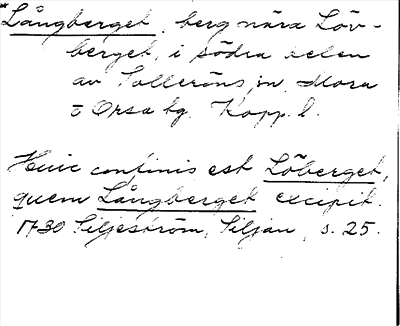 *Långberget, berg nära Löv-
berget, i södra delen
av Solleröns sn, Mora
o Orsa tg. Kopp. l.
Huic continis est Löberget,
quem Långberget excipit.
1730 Siljeström, Siljan, s. 25.